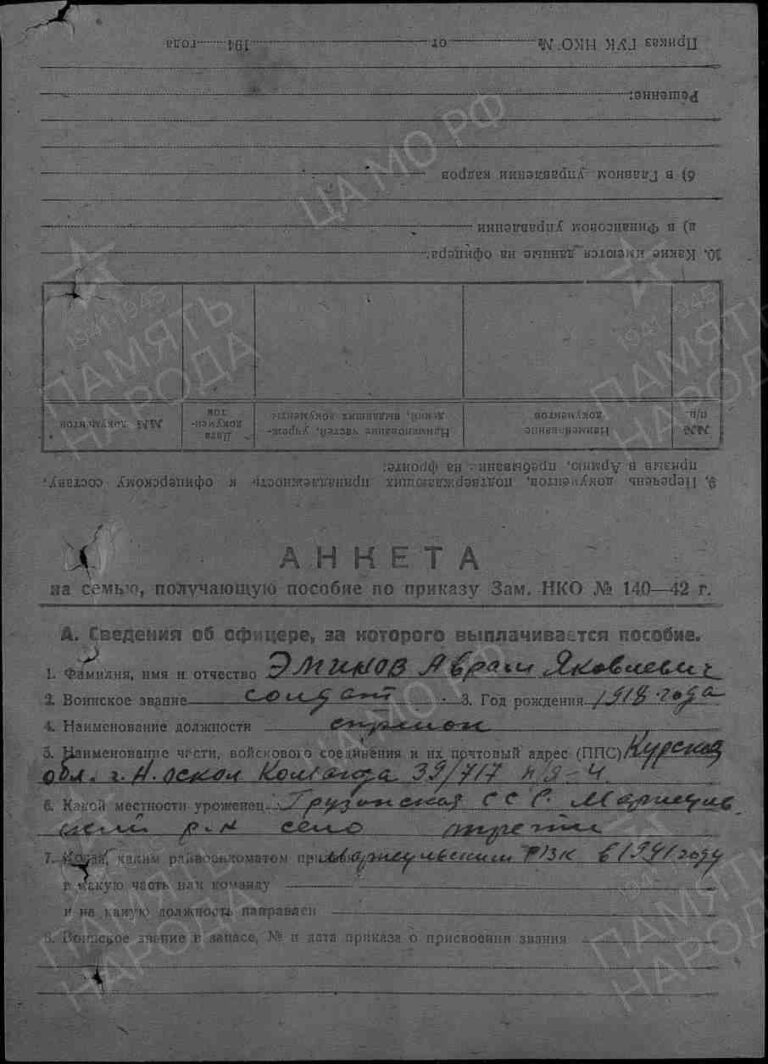 Приказ ГУК НКО № от 194 года
Решение:
б) в Главном управлении кадров
а) в Финансовом управлении
10. Какие имеются данные на офицера:
№№ п/п. Наименование документов Наименование частей, учреждений, выдавших документы Дата документов №№ документов
9. Перечень документов, подтверждающих принадлежность к офицерскому составу,
призыв в Армию, пребывание на фронте:
АНКЕТА
на семью, получающую пособие по приказу Зам. НКО № 140—42 г.
А. Сведения об офицере, за которого выплачивается пособие.
1. Фамилия, имя и отчество Эминов Аврам Яковлевич
2. Воинское звание солдат 3. Год рождения 1918 года
4. Наименование должности стрелок
5. Наименование части, войскового соединения и их почтовый адрес (ППС) Курская
обл. г. Н. Оскол Команда 39/717 п/я-4
6. Какой местности уроженец Грузинская ССР. Марнеуль
ский р-н село
7. Когда, каким райвоенкоматом призван Марнеульским РВК в 1941 году
в какую часть или команду
и на какую должность направлен
8. Воинское звание в запасе, № и дата приказа о присвоении звания
ЦА МО РФ
1941-1945
ПАМЯТЬ
НАРОДА